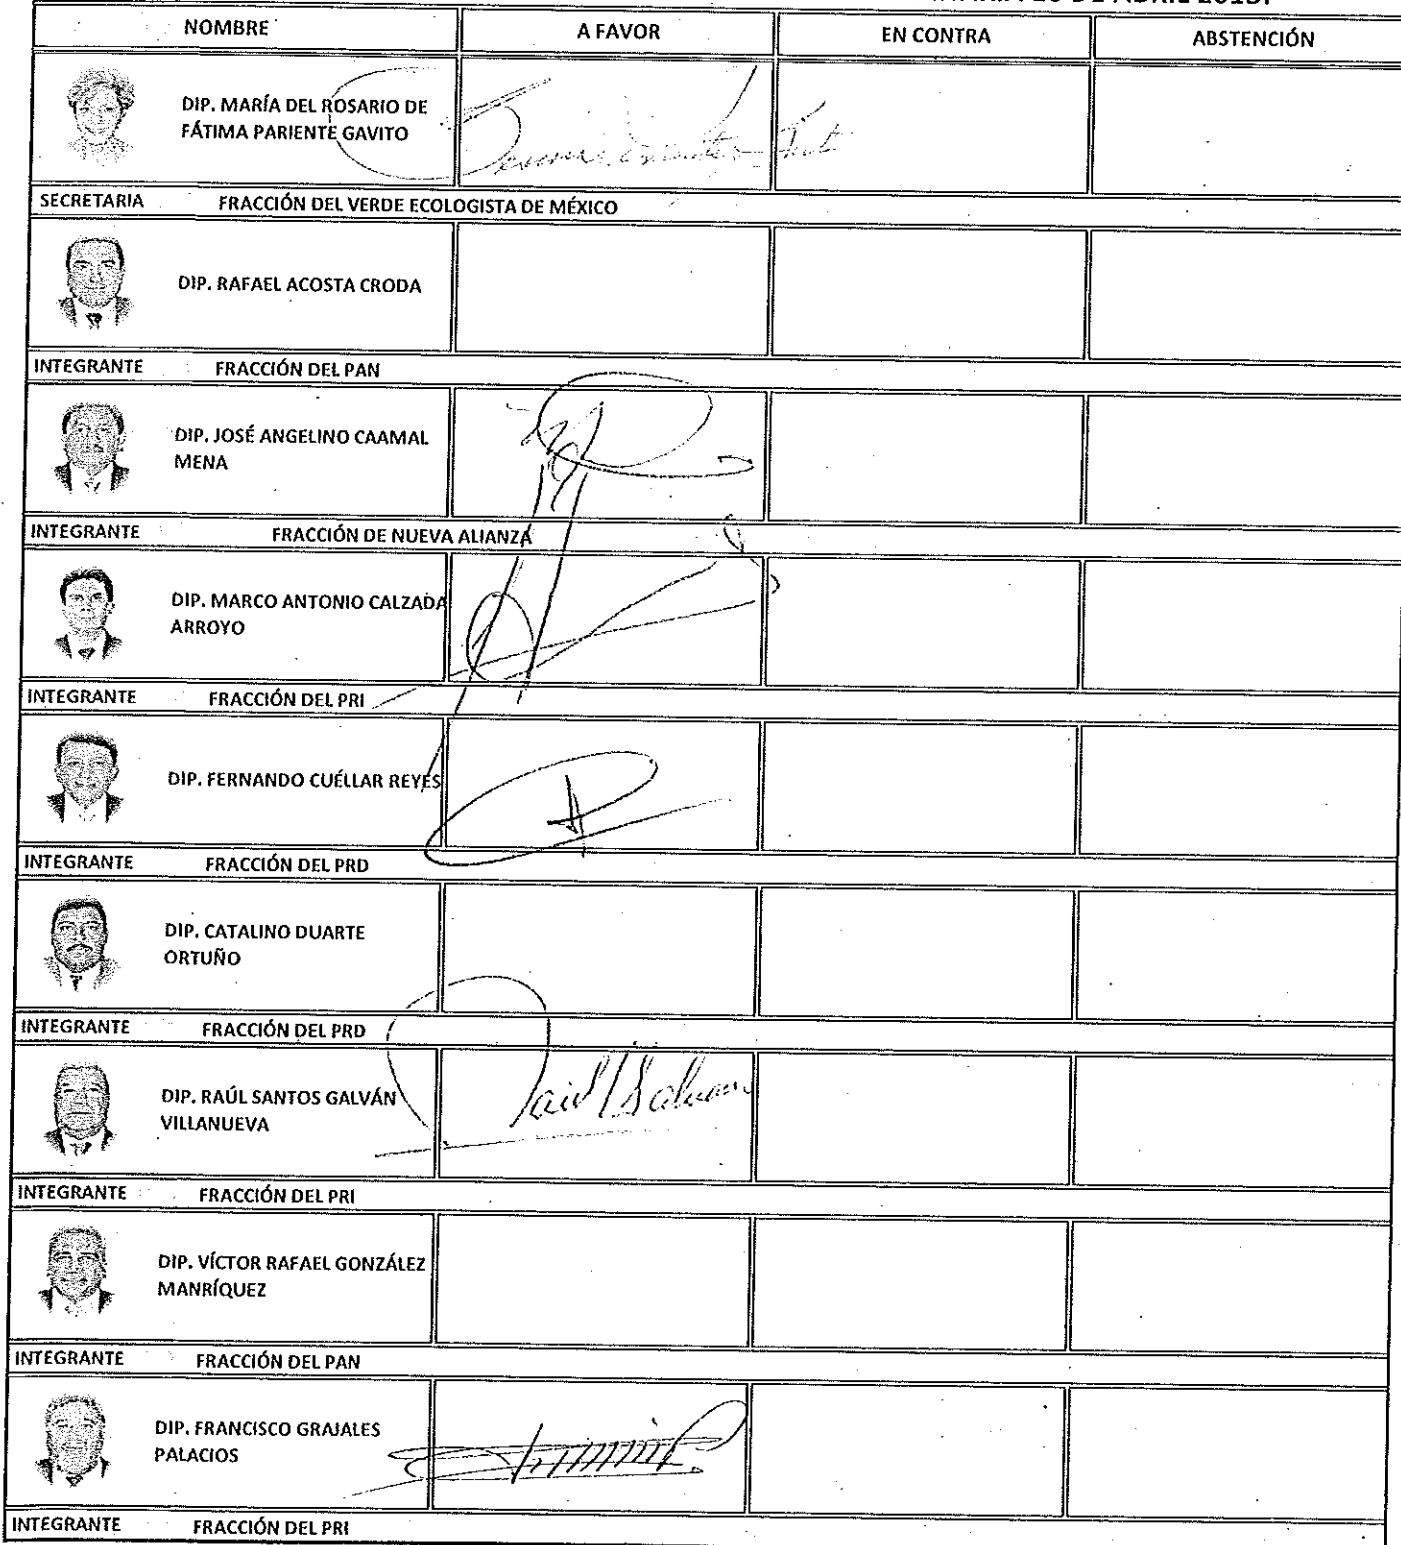 DE ABRIL 2013.
NOMBRE A FAVOR EN CONTRA ABSTENCIÓN
DIP. MARÍA DEL ROSARIO DE
FÁTIMA PARIENTE GAVITO
SECRETARIA FRACCIÓN DEL VERDE ECOLOGISTA DE MÉXICO
DIP. RAFAEL ACOSTA CRODA
INTEGRANTE FRACCIÓN DEL PAN
DIP. JOSÉ ANGELINO CAAMAL
MENA
INTEGRANTE FRACCIÓN DE NUEVA ALIANZA
DIP. MARCO ANTONIO CALZADA
ARROYO
INTEGRANTE FRACCIÓN DEL PRI
DIP. FERNANDO CUÉLLAR REYES
INTEGRANTE FRACCIÓN DEL PRD
DIP. CATALINO DUARTE
ORTUÑO
INTEGRANTE FRACCIÓN DEL PRD
DIP. RAÚL SANTOS GALVÁN
VILLANUEVA
INTEGRANTE FRACCIÓN DEL PRI
DIP. VÍCTOR RAFAEL GONZÁLEZ
MANRÍQUEZ
INTEGRANTE FRACCIÓN DEL PAN
DIP. FRANCISCO GRAJALES
PALACIOS
INTEGRANTE FRACCIÓN DEL PRI